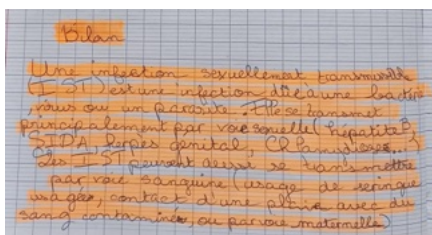 Bilan
Une infection sexuellement transmissible
(IST) est une infection dûe à une bactérie
, virus ou un parasite. Elle se transmet
principalement par voie sexuelle (hépatite B,
SIDA, herpès génital, Chlamydiose...)
Les IST peuvent aussi se transmettre
par voie sanguine (usage de seringue
usagée, contact d'une plaie avec du
sang contaminé, ou par voie maternelle)